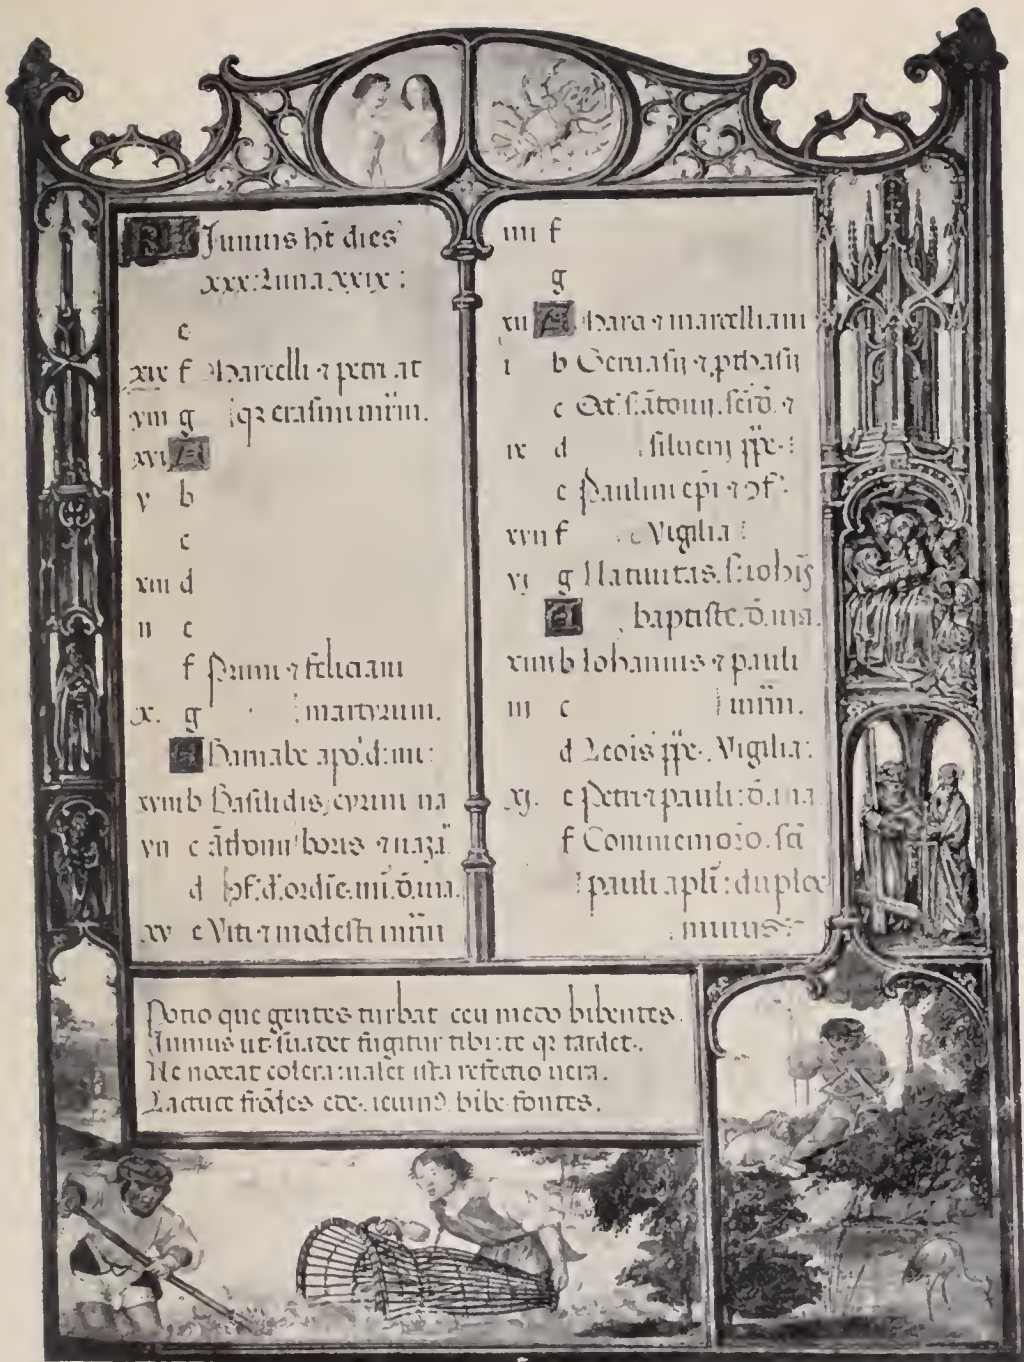 KL Junius ht dies
xxx: Luna xxix:
e
xix f Marcelli ⁊ petri at
viii g qꝫ erasmi mrim.
xvi A
v b
c
xiii d
ii e
f Primi ⁊ feliciani
x. g martyrum.
A Barnabe apo. d: mi:
xviii b Basilidis, cyrini na
vii c boris ⁊ nazā
d hf. d. ordīe. mi. d. ma.
xv e Viti ⁊ modesti mrim
iiii f
g
xii A Marci ⁊ marcelliani
i b Geruasij ⁊ ꝓthasij
c Oct. s. antonij. ⁊
ix d siluerij ppe:
e Paulini epi ⁊ ꝯf:
xvii f Vigilia:
vj g Natiuitas. s: iohis
A baptiste. d. ma.
xiiii b Iohannis ⁊ pauli
iii c mrim.
d Leois ppe. Vigilia:
xj. e Petri ⁊ pauli: d. ma
f Commemoro. scī
pauli apli: duplex
minus:
Potio que gentes turbat ceu medo bibentes.
Junius ut suadet fugitur tibi: te qꝫ tardet.
Ne noceat colera: ualet ista refectio uera.
Lactuce frōdes ede. ieiunꝰ bibe fontes.